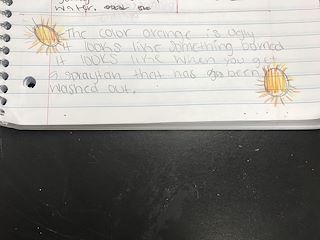 water.
The color orange is ugly
it looks like something burned
it looks like when you get
a spraytan that has been
washed out.